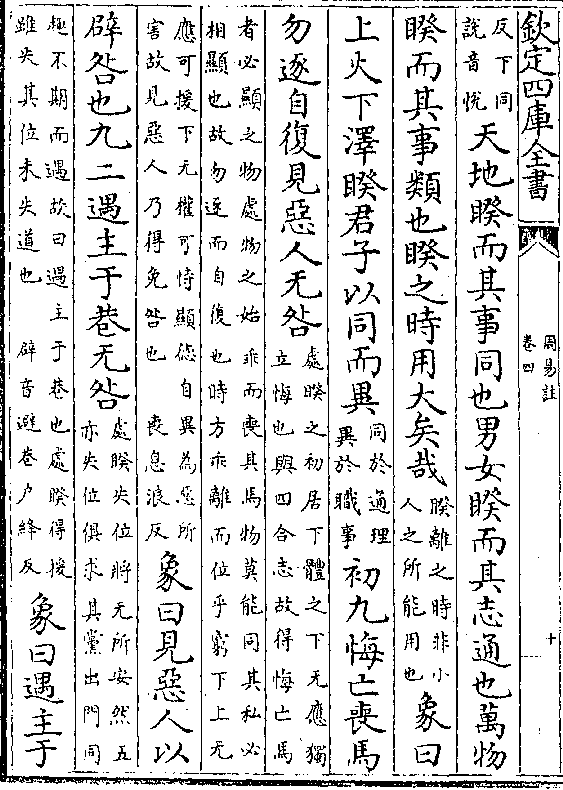 欽定四庫全書
周易註
卷四
十
反下同
說音悅
天地睽而其事同也男女睽而其志通也萬物
睽而其事類也睽之時用大矣哉
睽離之時非小
人之所能用也
象曰
上火下澤睽君子以同而異
同於通理
異於職事
初九悔亡喪馬
勿逐自復見惡人无咎
處睽之初居下體之下无應獨
立悔也與四合志故得悔亡馬
者必顯之物處物之始乖而喪其馬物莫能同其私必
相顯也故勿逐而自復也時方乖離而位乎窮下上无
應可援下无權可恃顯德自異為惡所
害故見惡人乃得免咎也 喪息浪反
象曰見惡人以
辟咎也九二遇主于巷无咎
處睽失位將无所安然五
亦失位俱求其黨出門同
趣不期而遇故曰遇主于巷也處睽得援
雖失其位未失道也 辟音避巷戶絳反
象曰遇主于